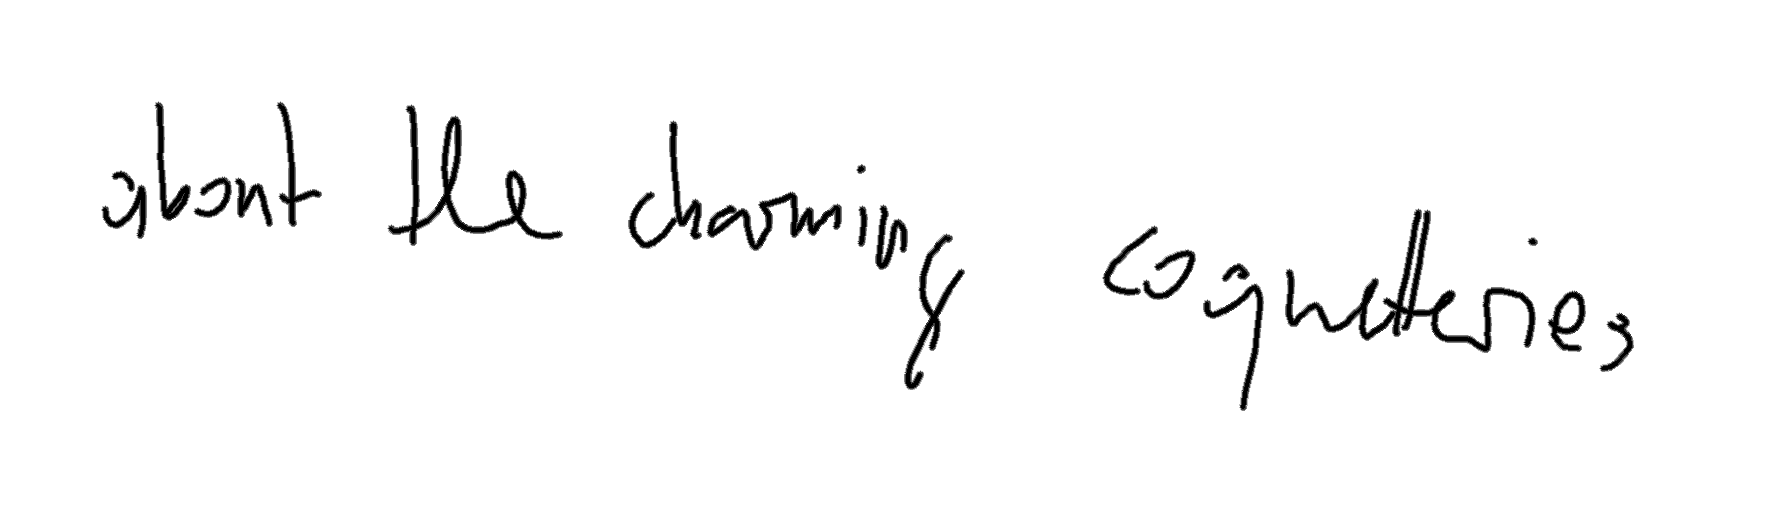 about the charming coquetteries